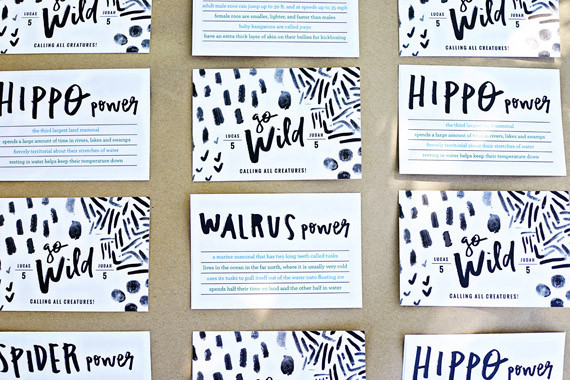 Wild
CALLING ALL CREATURES!
adult male roos can jump up to 30 ft. and at speeds up to 35 mph
female roos are smaller, lighter, and faster than males
baby kangaroos are called joeys
have an extra thick layer of skin on their bellies for kickboxing
Wild
CALLING ALL CREATURES!
HIPPO power
the third largest land mammal
spends a large amount of time in rivers, lakes and swamps
fiercely territorial about their stretches of water
resting in water helps keep their temperature down
go
LUCAS JUDAH
5 Wild 5
CALLING ALL CREATURES!
HIPPO power
the third largest land mammal
spends a large amount of time in rivers, lakes and swamps
fiercely territorial about their stretches of water
resting in water helps keep their temperature down
go
LUCAS JUDAH
5 Wild 5
CALLING ALL CREATURES!
WALRUS power
a marine mammal that has two long teeth called tusks
lives in the ocean in the far north, where it is usually very cold
uses its tusks to pull itself out of the water onto floating ice
spends half their time on land and the other half in water
go
LUCAS JUDAH
5 Wild 5
CALLING ALL CREATURES!
SPIDER power
go
HIPPO power